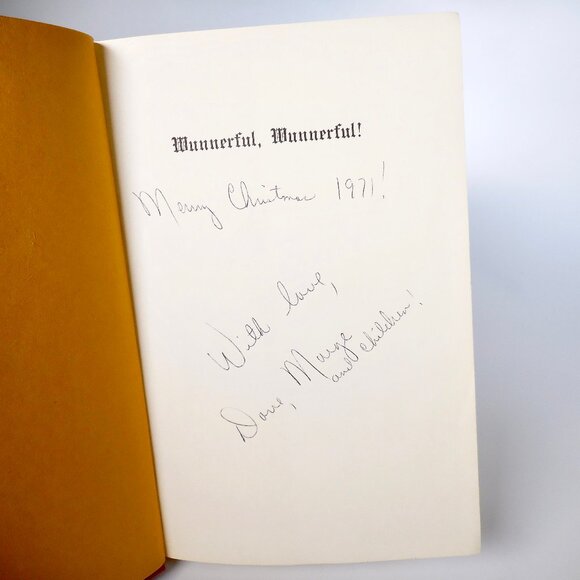 Wunnerful, Wunnerful!
Merry Christmas 1971!
With love,
Dave, Marge
and children!